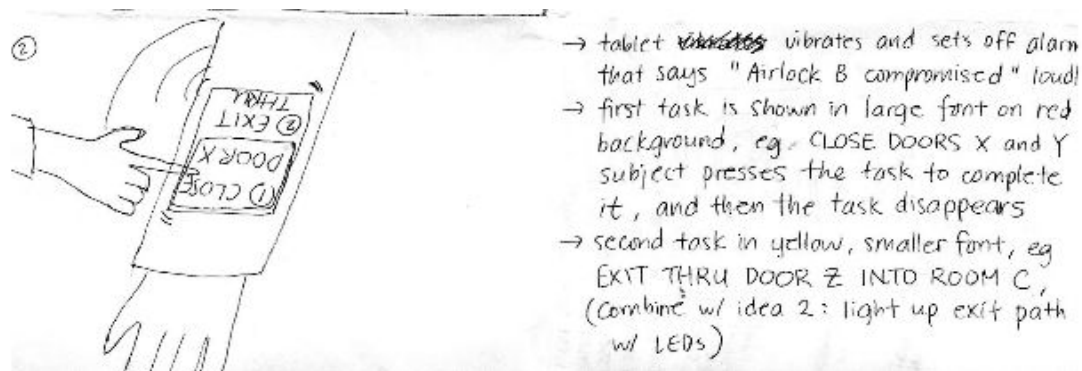 ②
① CLOSE
DOOR X
② EXIT
THRU
→ tablet vibrates and sets off alarm
that says "Airlock B compromised" loud!
→ first task is shown in large font on red
background, eg. CLOSE DOORS X and Y
subject presses the task to complete
it, and then the task disappears
→ second task in yellow, smaller font, eg
EXIT THRU DOOR Z INTO ROOM C,
(combine w/ idea 2: light up exit path
w/ LEDs)